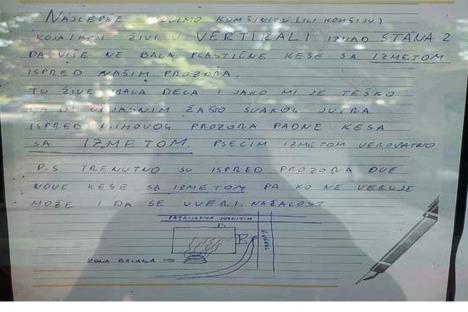 NAJLEPŠE MOLIMO KOMŠINICU (ILI KOMŠIJU)
KOJA/KOJI ŽIVI U VERTIKALI IZNAD STANA 2
DA VIŠE NE BACA PLASTIČNE KESE SA IZMETOM
ISPRED NAŠIH PROZORA.
TU ŽIVE MALA DECA I JAKO MI JE TEŠKO
DA IM OBJASNIM ZAŠTO SVAKOG JUTRA
ISPRED NJIHOVOG PROZORA PADNE KESA
SA IZMETOM. PSEĆIM IZMETOM VEROVATNO
P.S TRENUTNO SU ISPRED PROZORA DVE
NOVE KESE SA IZMETOM PA KO NE VERUJE
MOŽE I DA SE UVERI. NAŽALOST
ZONA BACANJA